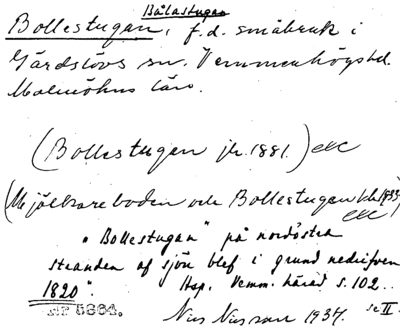 Bålastugan
Bollestugan, f.d. småbruk i
Gärdslövs sn. Vemmenhögs hd.
Malmöhus län.
(Bollestugan jr. 1881.) etc
(Mjölkareboden och Bollestugan 1933)
etc
"Bollestugan" på nordöstra
stranden af sjön blef i grund nedrifven
1820". Hap. Vemm. härad s. 102..
Nils Nilsson 1937. se II.